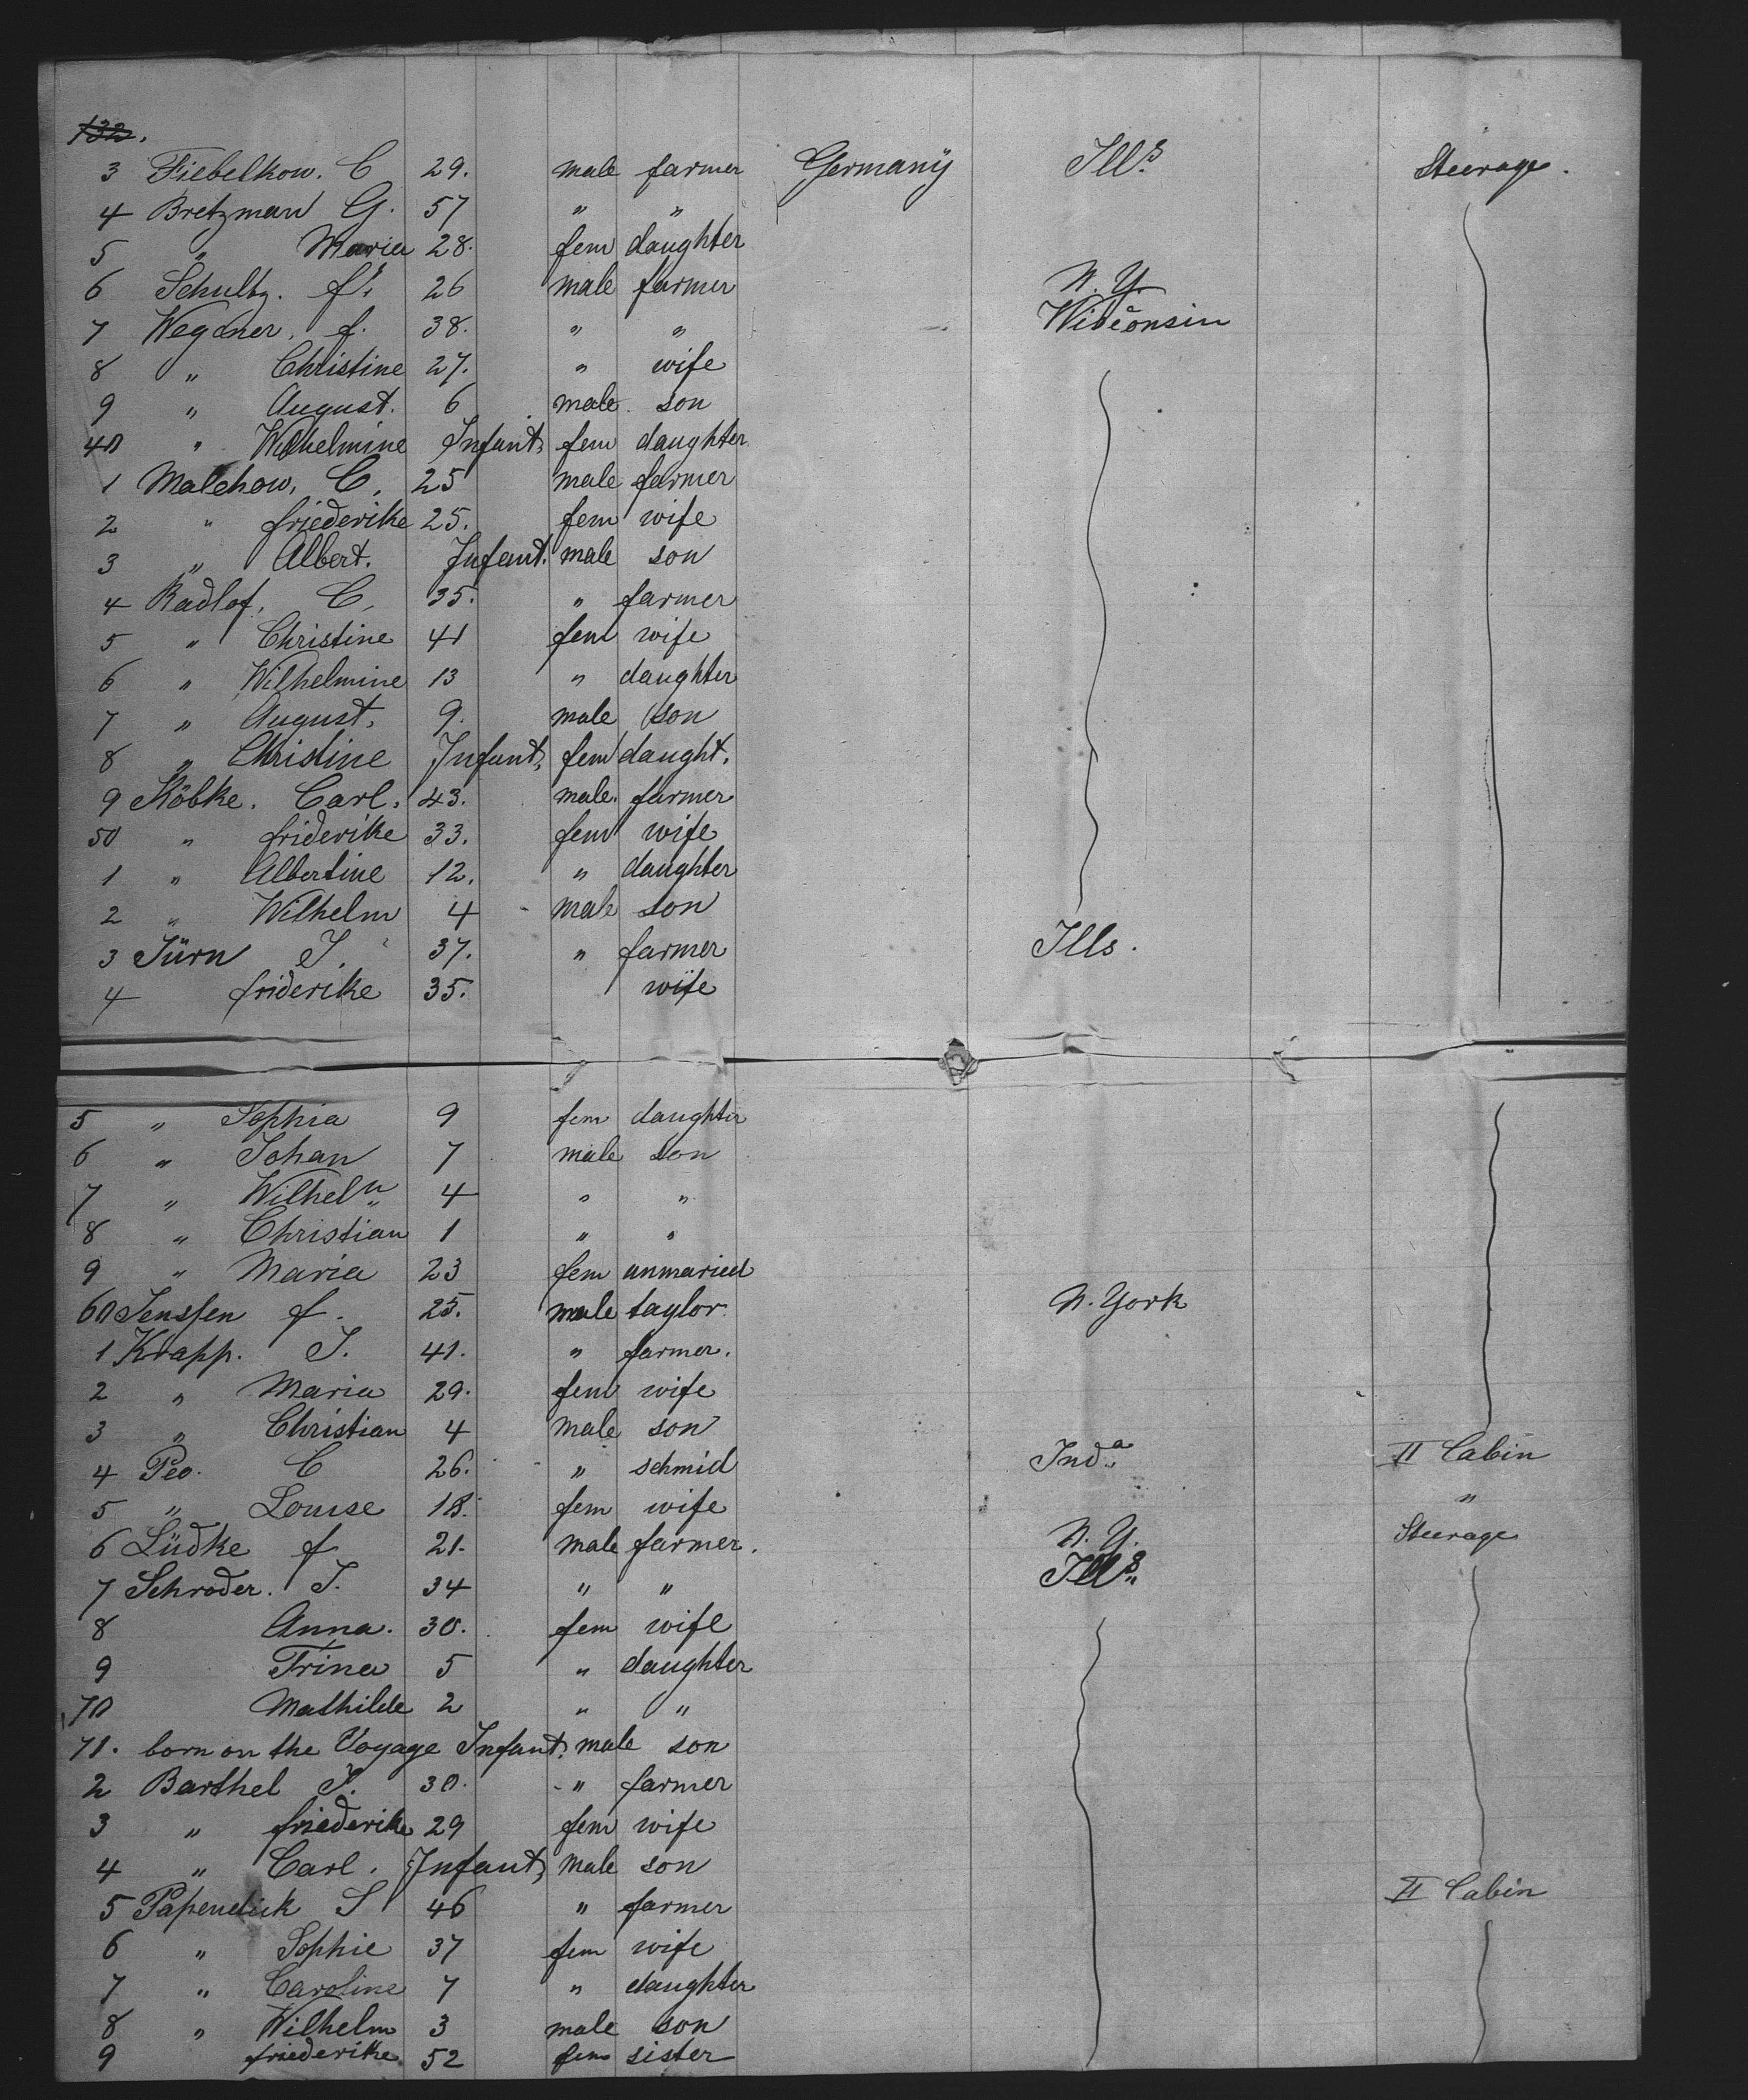 132.
3 Fiebelkow. C 29. male farmer Germany Ills. Steerage.
4 Bretzman G. 57 " "
5 " Maria 28. fem daughter
6 Schultz. f. 26 male farmer N. Y.
7 Wegener. f. 38. " " Wisconsin
8 " Christine 27. " wife
9 " August. 6 male son
40 " Wilhelmine Infant. fem daughter
1 Malchow, C. 25 male farmer
2 " friederike 25. fem wife
3 " Albert. Infant. male son
4 Radlof. C. 35. " farmer
5 " Christine 41 fem wife
6 " Wilhelmine 13 " daughter
7 " August. 9. male son
8 " Christine Infant. fem daught.
9 Köbke. Carl. 43. male. farmer
50 " friderike 33. fem wife
1 " Albertine 12. " daughter
2 " Wilhelm 4 male son
3 Jürn J. 37. " farmer Ills.
4 friderike 35. wife
5 " Sophia 9 fem daughter
6 " Johan 7 male son
7 " Wilhelm 4 " "
8 " Christian 1 " "
9 " Maria 23 fem unmaried
60 Jenssen f. 25. male taylor. N. York
1 Krapp. J. 41. " farmer.
2 " Maria 29. fem wife
3 " Christian 4 male son
4 Peo. C 26. " schmid Inda. II Cabin
5 " Louise 18. fem wife "
6 Lüdke f 21. male farmer. N. Y. Steerage
7 Schroder. J. 34 " " Ills.
8 Anna. 30. fem wife
9 Trina 5 " daughter
70 Mathilde 2 " "
71. born on the Voyage Infant. male son
2 Barthel J. 30. " farmer
3 " friederike 29 fem wife
4 " Carl. Infant, male son
5 Papendick S 46 " farmer II Cabin
6 " Sophie 37 fem wife
7 " Caroline 7 " daughter
8 " Wilhelm 3 male son
9 friederike 52 fem sister